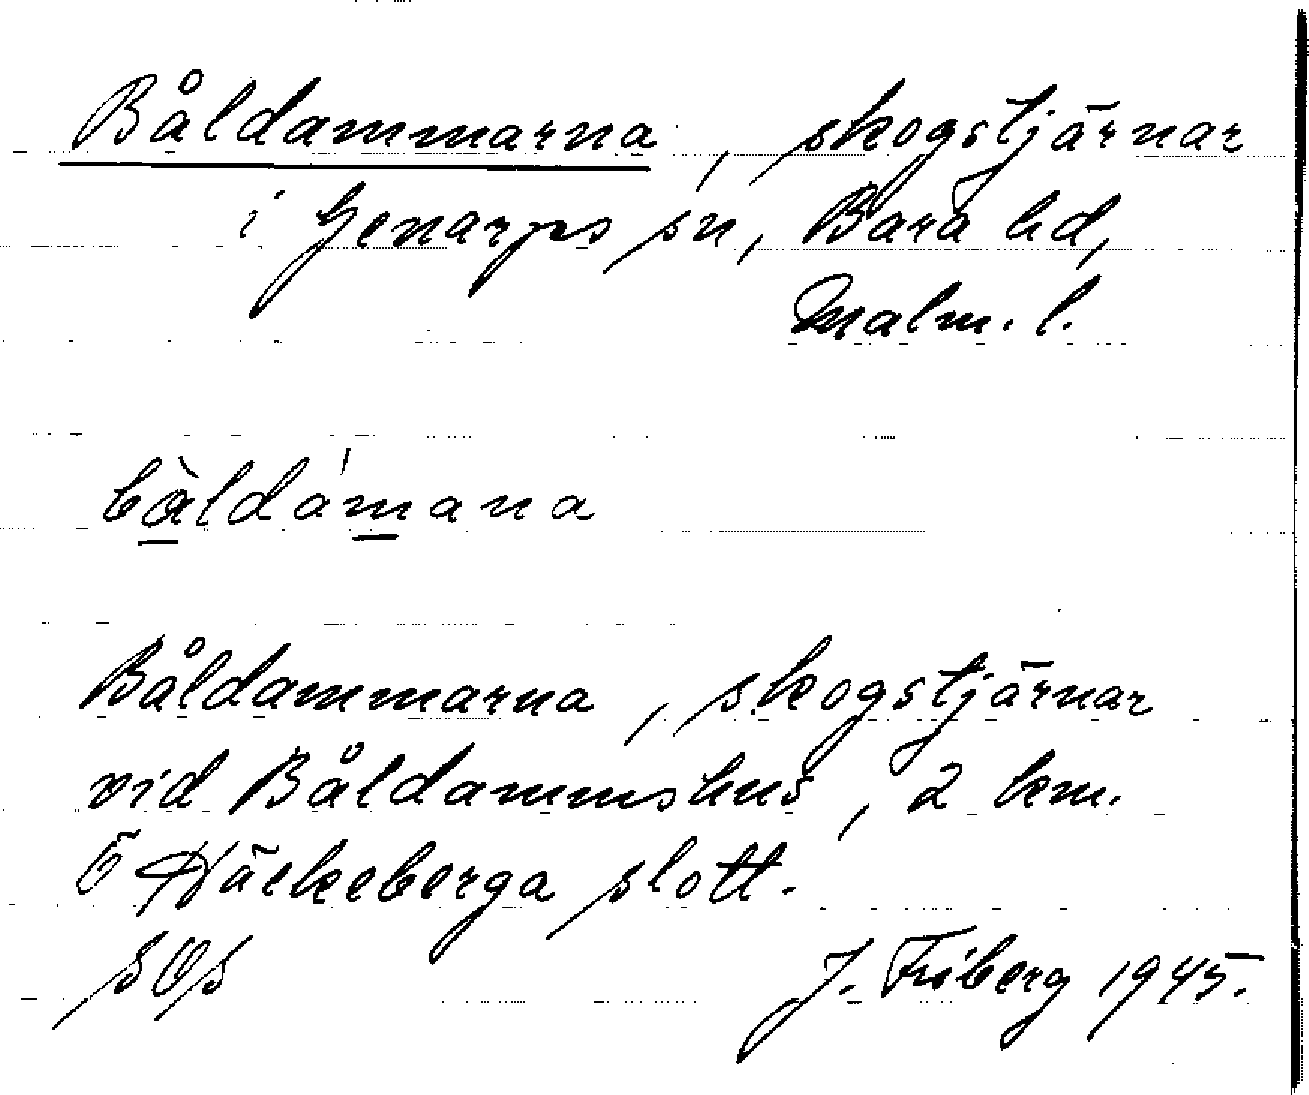 Båldammarna, skogstjärnar
i Genarps sn, Bara hd,
Malm. l.
bàldámana
Båldammarna, skogstjärnar
vid Båldammshus, 2 km.
Ö Häckeberga slott.
J. Friberg 1945.